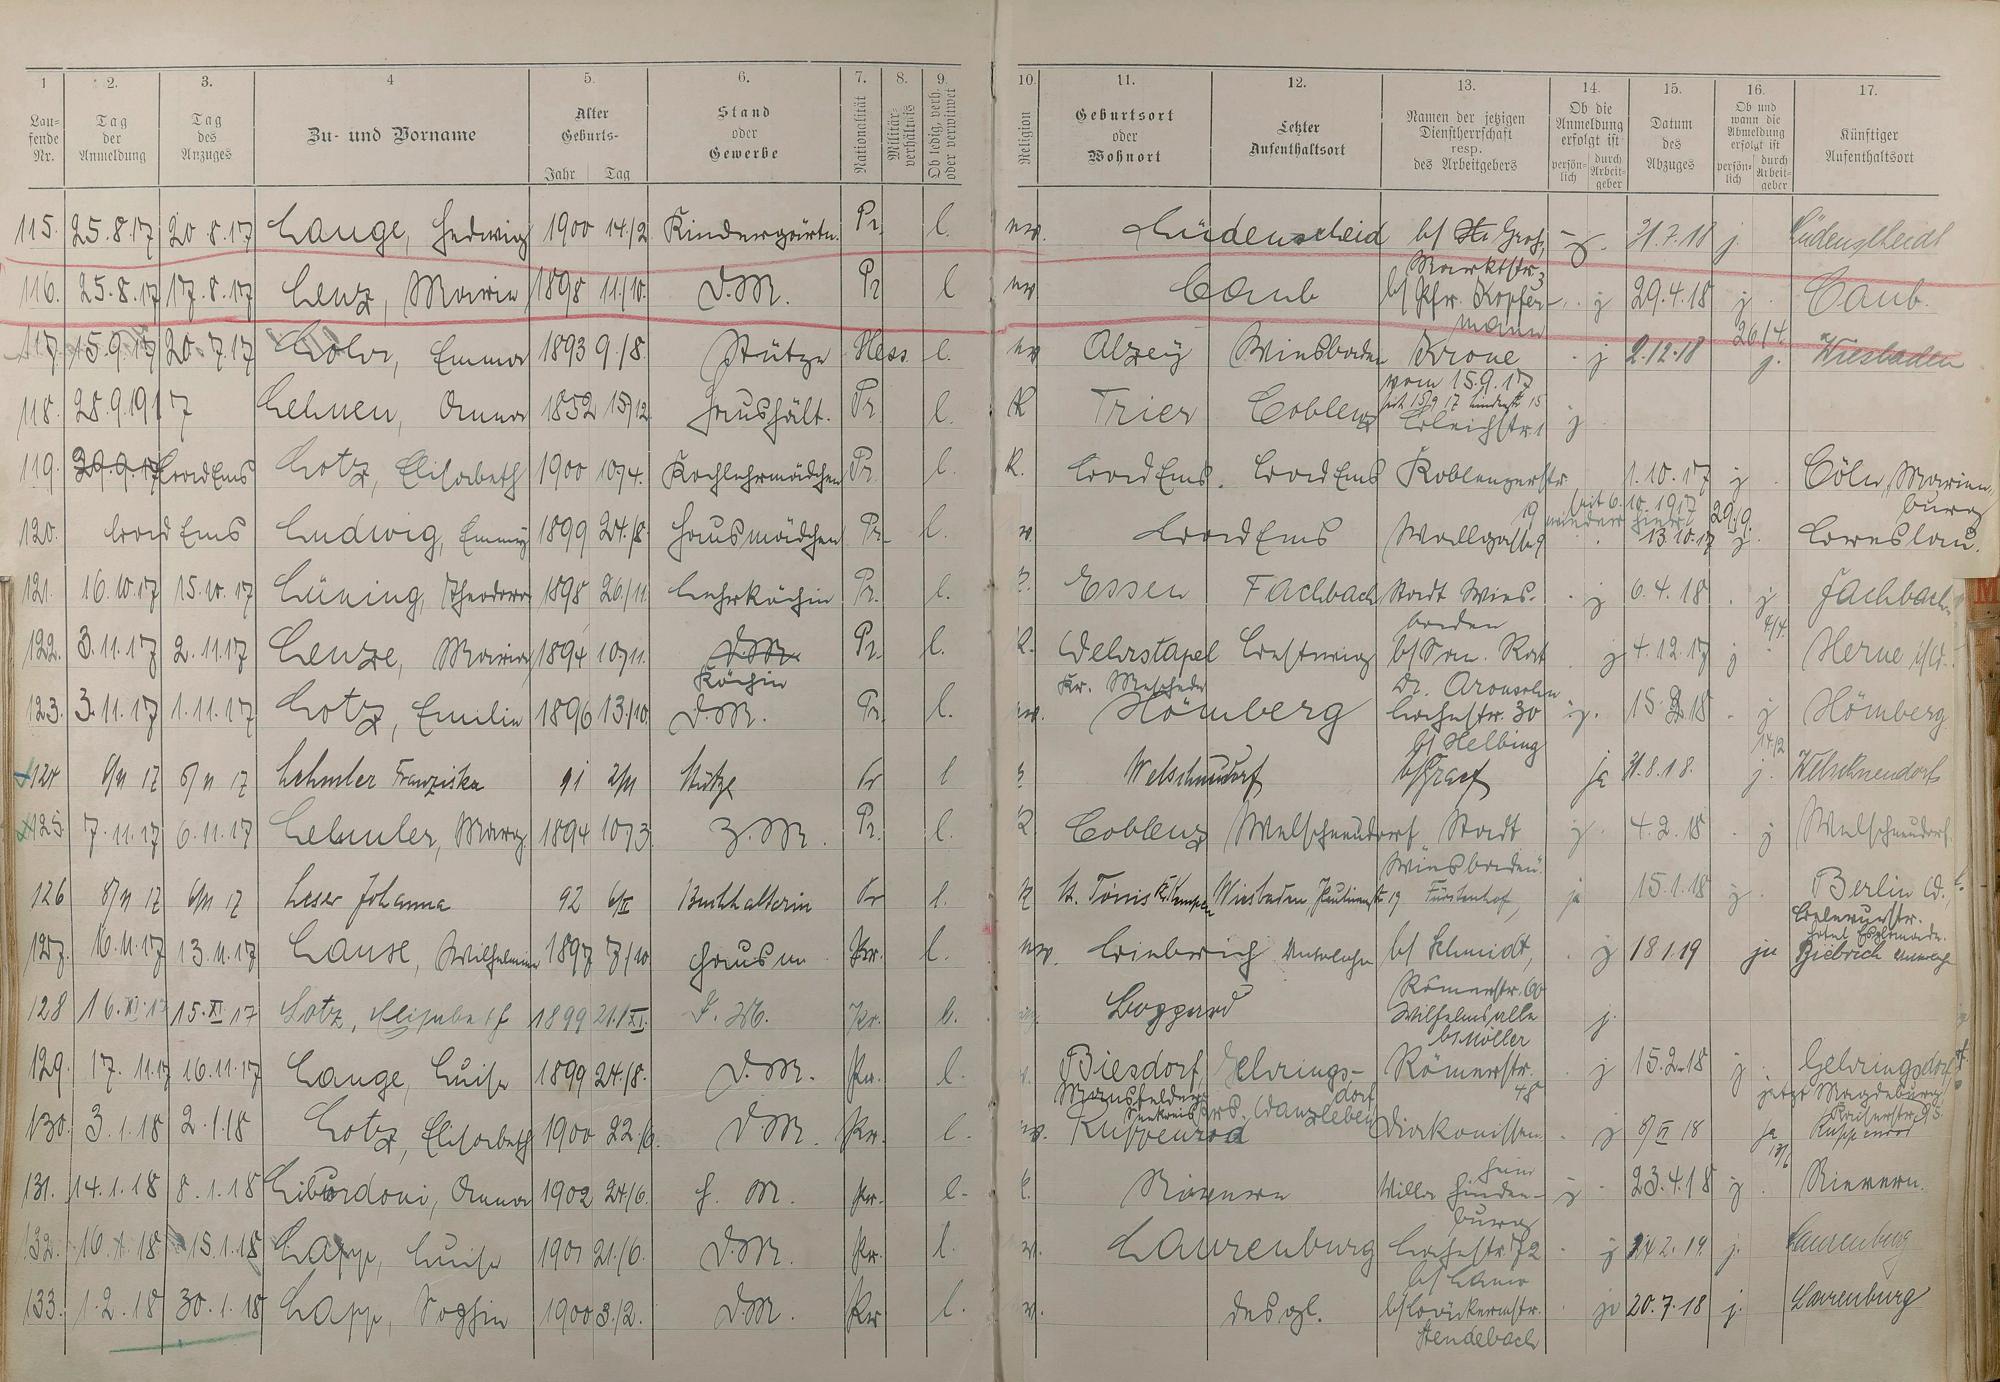 1 2. 3. 4 5. 6. 7. 8. 9. 10. 11. 12. 13. 14. 15. 16. 17.
Lau-
fende
Nr.
Tag
der
Anmeldung
Tag
des
Anzuges
Zu- und Vorname
Alter
Geburts-
Jahr Tag
Stand
oder
Gewerbe
Nationalität
Militär-
verhältnis
Ob ledig, verh.
oder verwitwet
Religion
Geburtsort
oder
Wohnort
Letzter
Aufenthaltsort
Namen der jetzigen
Dienstherrschaft
resp.
des Arbeitgebers
Ob die
Anmeldung
erfolgt ist
persön-
lich
durch
Arbeit-
geber
Datum
des
Abzuges
Ob und
wann die
Abmeldung
erfolgt ist
persön-
lich
durch
Arbeit-
geber
Künftiger
Aufenthaltsort
115. 25.8.17 20.8.17 Lange, Hedwig 1900 14./2. Kindergärtn. Pr. l. ev. Lüdenscheid b/ Gros, j. 31.7.18 j. Lüdenscheid
Marktstr. 3
116. 25.8.17 17.8.17 Lenz, Maria 1898 11./10. D.M. Pr l ev Caub b/ Pfr. Kopfer- j 29.4.18 j Caub.
mann 26/4.
117. 15.9.17 20.7.17 Emma 1893 9./8. Stütze Hess. l. ev Alzey Wiesbaden Krone j 2.12.18 j. Wiesbaden
vom 15.9.17
118. 28.9.1917 Lehnen, Anna 1852 15/12 Haushält. Pr. l. K Trier Coblenz j
119. 29.9.17 Bad Ems Lotz, Elisabeth 1900 10/4. Kochlehrmädchen Pr. l. K. Bad Ems. Bad Ems Koblenzerstr. 1.10.17 j Cöln, Marien-
burg
19 seit 6.10.1917
wieder hier 29./9.
120. Bad Ems Ludwig, Emmy 1899 24./8. Hausmädchen Pr. l. Bad Ems Wallgasse 9 13.10.17 j Breslau.
121. 16.10.17 15.10.17 Lüning, Theodora 1898 26/11. Lehrköchin Pr. l. Essen Fachbach Stadt Wies- j 6.4.18 j Fachbach
baden 4/4.
122. 3.11.17 2.11.17 Lenze, Maria 1894 10/11. D.M. Pr. l. K. Wehrstapel Bestwig b/ San. Rat j 4.12.17 j Herne i/W.
Köchin Kr. Meschede Dr. Aronsohn
123. 3.11.17 1.11.17 Lotz, Emilie 1896 13./10. D.M. Pr. l. ev. Hömberg Bachstr. 30 j. 15.2.18 j Hömberg
b/ Helbing 14/2
124 6/11 17 5/11 17 Lehmler Franziska 91 2/11 Stütze Pr l Welschneudorf b/Graef ja 31.8.18. j. Welschneudorf
125. 7.11.17 6.11.17 Lehmler, Marg. 1894 10/3 Z.M. Pr. l. K Coblenz Welschneudorf Stadt j. 4.2.18 j Welschneudorf.
Wiesbaden
126 8/11 17 6/11 17 Leser Johanna 92 6/II Buchhalterin Pr l. K St. Tönis Kr. Kempen Wiesbaden Paulinenstr 19 Fürstenhof, ja 15.1.18 j. Berlin W.,
127. 16.11.17 13.11.17 Lause, Wilhelmine 1897 7/10 Hausm. Pr. l. ev. Biebrich b/ Schmidt, j 18.1.19 ja Biebrich
Römerstr. 60
128 16.XI.17 15.XI.17 Lotz, Elisabeth 1899 21./XI. D.M. Pr. l. Boppard Wilhelmsallee j.
b/Möller
129. 17.11.17 16.11.17 Lange, Luise 1899 24./8. D.M. Pr. l. Biesdorf Gehrings- Römerstr. j 15.2.18 j Gehringsdorf
Mansfelder dorf 48 jetzt Magdeburg
Seekreis Krs. Wanzleben Kaiserstr. 95
130. 3.1.18 2.1.18 Lotz, Elisabeth 1900 22./6. D.M. Pr. l. ev. Kuppenrod Diakonissen- j 8/II 18 ja Kuppenrod
heim 13/6
131. 14.1.18 8.1.18 Libardoni, Anna 1902 24/6. H. M. Pr. l. K. Nievern Willa Hinden- j 23.4.18 j Nievern.
burg
132. 16.1.18 15.1.18 Lapp, Luise 1901 21./6. D.M. Pr. l. ev. Laurenburg Bachstr. 72 j 2.19. j. Laurenburg
133. 1.2.18 30.1.18 Lapp, Sophie 1900 3./2. D.M. Pr l. ev. desgl. b/ ja 20.7.18 j. Laurenburg
Stendebach